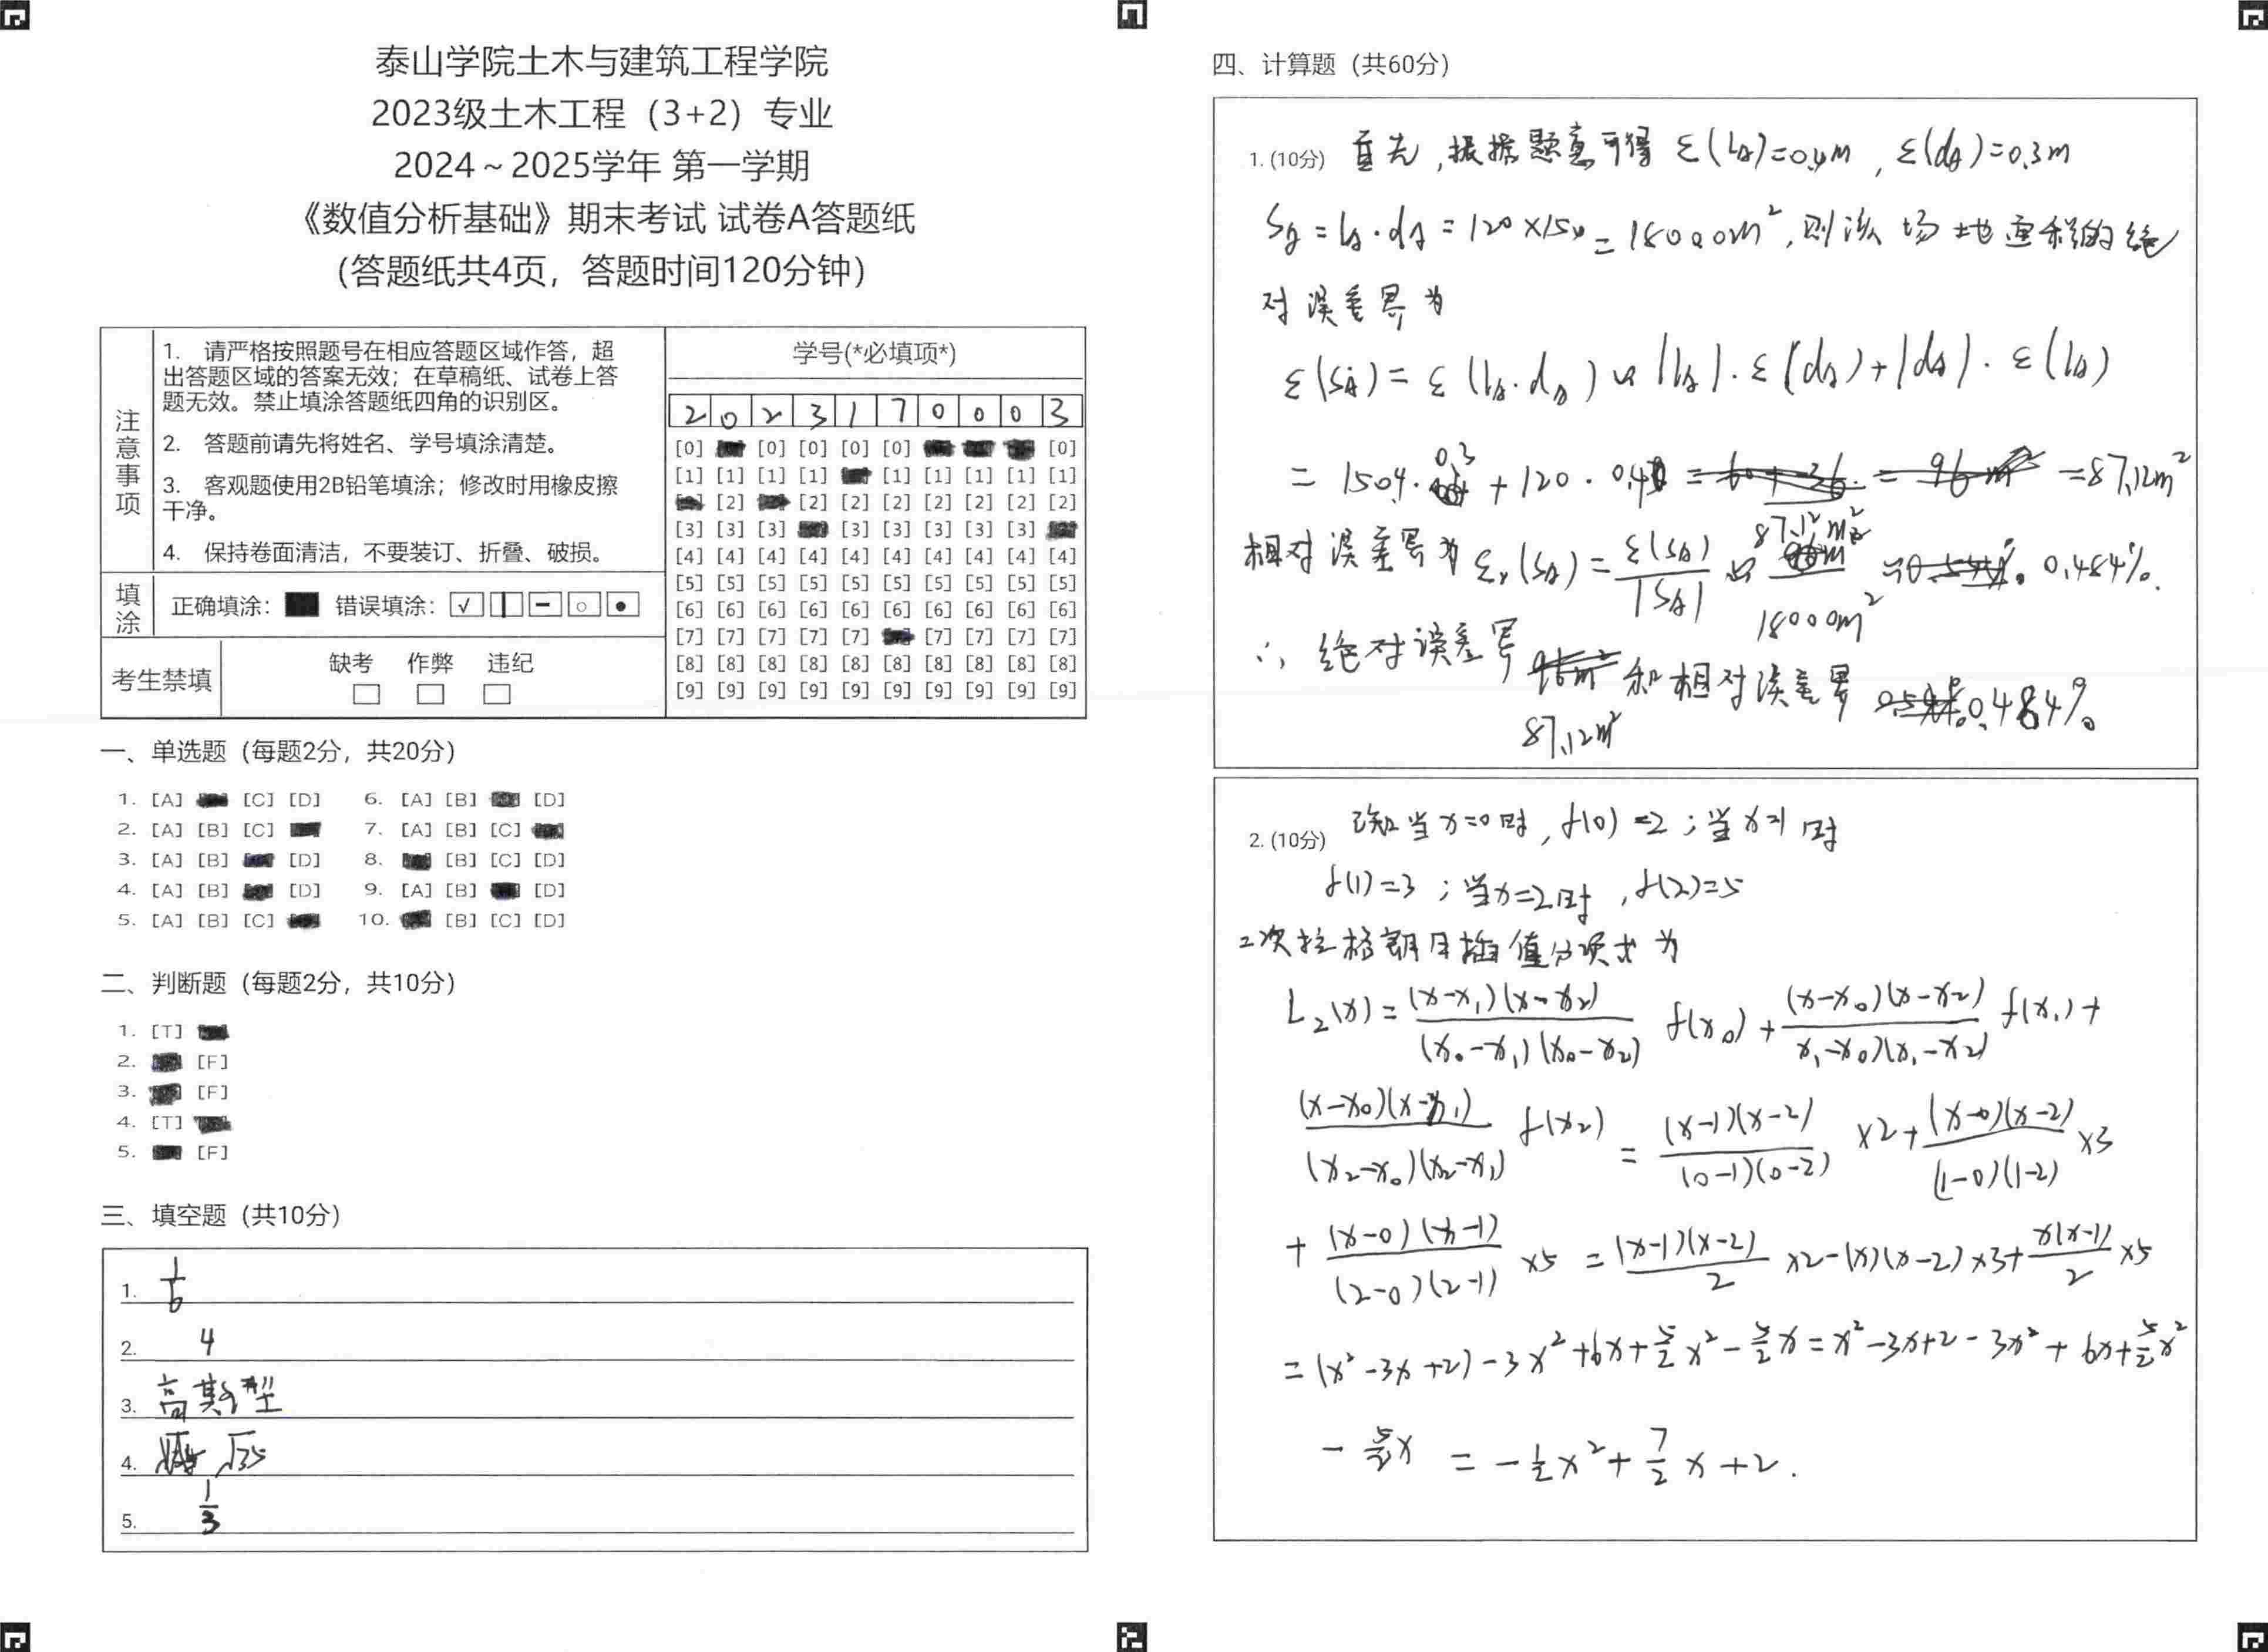 泰山学院土木与建筑工程学院
2023级土木工程（3+2）专业
2024～2025学年 第一学期
《数值分析基础》期末考试 试卷A答题纸
（答题纸共4页，答题时间120分钟）
注意事项
1. 请严格按照题号在相应答题区域作答，超
出答题区域的答案无效；在草稿纸、试卷上答
题无效。禁止填涂答题纸四角的识别区。
2. 答题前请先将姓名、学号填涂清楚。
3. 客观题使用2B铅笔填涂；修改时用橡皮擦
干净。
4. 保持卷面清洁，不要装订、折叠、破损。
填涂
正确填涂： 错误填涂：
考生禁填
缺考 作弊 违纪
学号(*必填项*)
2 0 2 3 1 7 0 0 0 3
[0] [0] [0] [0] [0] [0]
[1] [1] [1] [1] [1] [1] [1] [1] [1]
[2] [2] [2] [2] [2] [2] [2] [2]
[3] [3] [3] [3] [3] [3] [3] [3]
[4] [4] [4] [4] [4] [4] [4] [4] [4] [4]
[5] [5] [5] [5] [5] [5] [5] [5] [5] [5]
[6] [6] [6] [6] [6] [6] [6] [6] [6] [6]
[7] [7] [7] [7] [7] [7] [7] [7] [7]
[8] [8] [8] [8] [8] [8] [8] [8] [8] [8]
[9] [9] [9] [9] [9] [9] [9] [9] [9] [9]
一、单选题（每题2分，共20分）
1. [A] [C] [D] 6. [A] [B] [D]
2. [A] [B] [C] 7. [A] [B] [C]
3. [A] [B] [D] 8. [B] [C] [D]
4. [A] [B] [D] 9. [A] [B] [D]
5. [A] [B] [C] 10. [B] [C] [D]
二、判断题（每题2分，共10分）
1. [T]
2. [F]
3. [F]
4. [T]
5. [F]
三、填空题（共10分）
1. 1/6
2. 4
3. 高斯型
4. √35
5. 1/3
四、计算题（共60分）
1. (10分) 首先，根据题意可得 ε(lA)=0.4m，ε(dA)=0.3m
SA=lA·dA=120×150=18000m²，则该场地面积的绝
对误差界为
ε(SA)=ε(lA·dA)≈|lA|·ε(dA)+|dA|·ε(lA)
=150.4·0.3+120·0.4 =87.12m²
相对误差界为 εr(SA)=ε(SA)/|SA|≈87.12m²/18000m² 0.484%.
∴绝对误差界 87.12m² 和相对误差界 0.484%
2. (10分) 已知当x=0时，f(0)=2；当x=1时
f(1)=3；当x=2时，f(2)=5
二次拉格朗日插值公项式为
L₂(x)=(x-x₁)(x-x₂)/(x₀-x₁)(x₀-x₂) f(x₀)+(x-x₀)(x-x₂)/x₁-x₀)(x₁-x₂) f(x₁)+
(x-x₀)(x-x₁)/(x₂-x₀)(x₂-x₁) f(x₂)=(x-1)(x-2)/(0-1)(0-2) ×2+(x-0)(x-2)/(1-0)(1-2) ×3
+(x-0)(x-1)/(2-0)(2-1) ×5=(x-1)(x-2)/2 ×2-(x)(x-2)×3+x(x-1)/2 ×5
=(x²-3x+2)-3x²+6x+5/2x²-5/2x=x²-3x+2-3x²+6x+5/2x²
-5/2x =-1/2x²+7/2x+2.